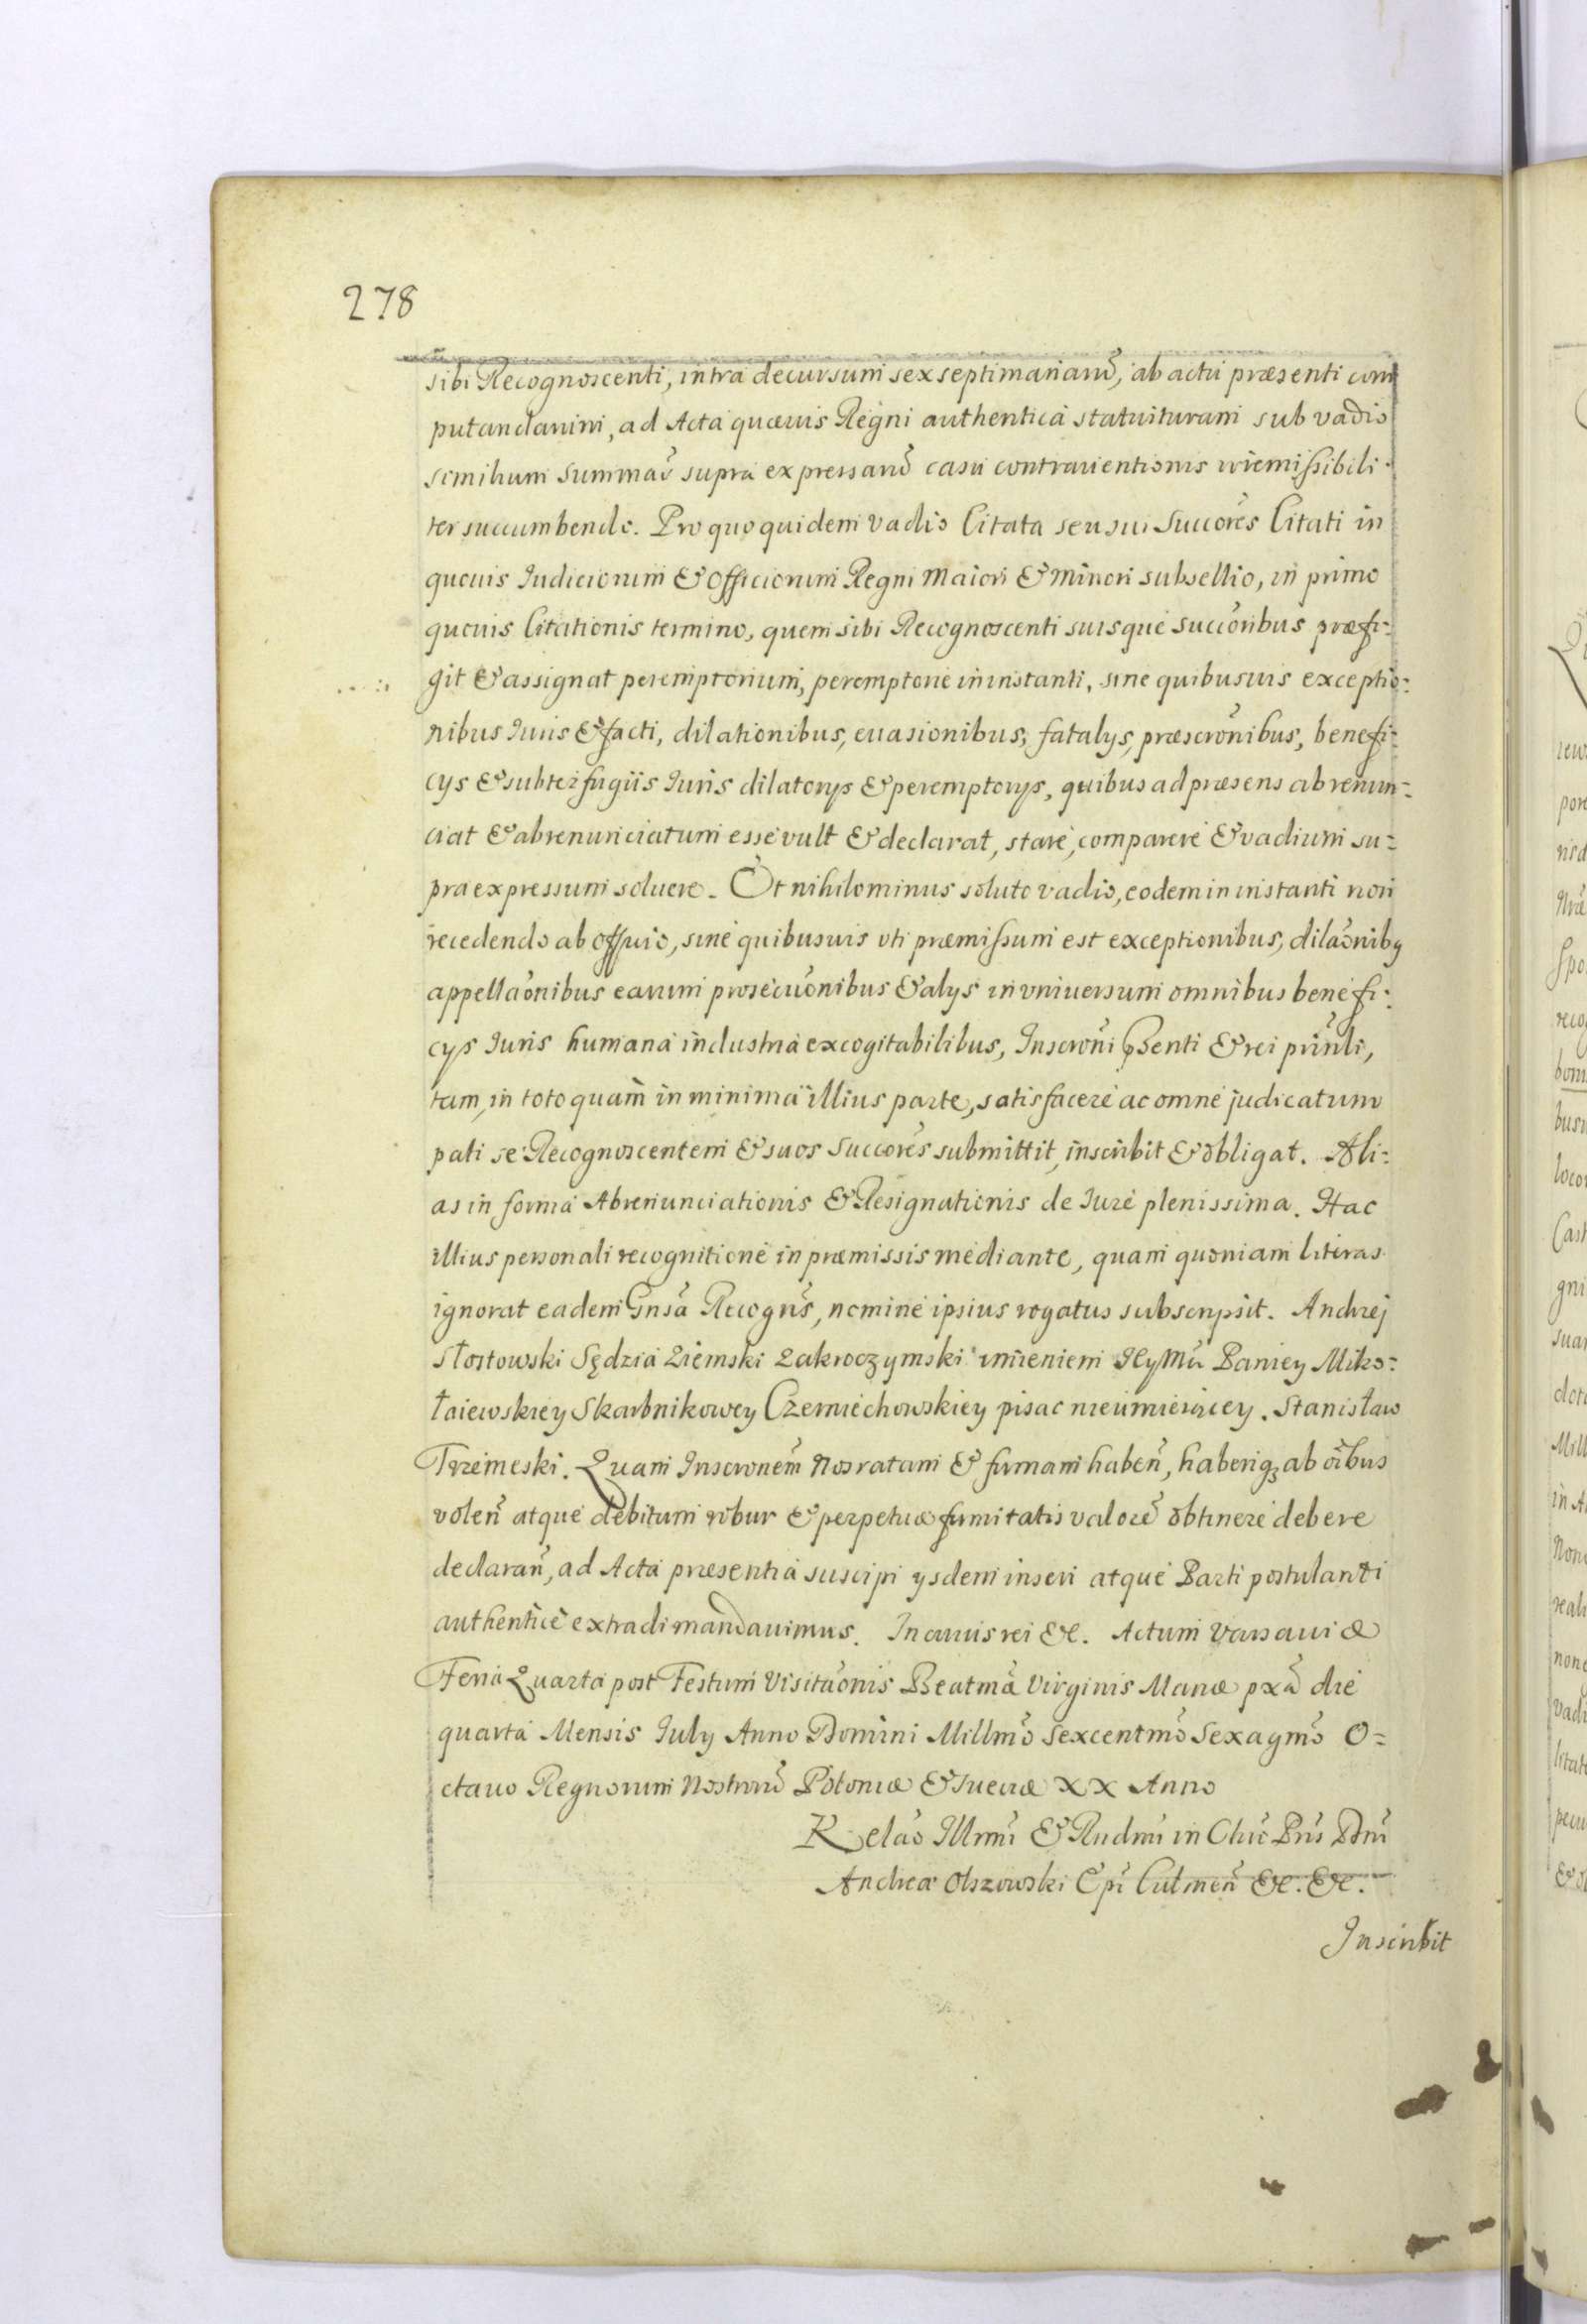 278
sibi Recognoscenti, intra decursum sex septimanarũ, ab actu præsenti com
putandarum, ad Acta quævis Regni authentica statuituram sub vadio
similium summarũ supra expressarũ casu contraventionis irremissibili
ter succumbendo. Pro quo quidem vadio Citata seu sui Succores Citati in
quovis Iudiciorum & Officiorum Regni maiori & minori subsellio, in primo
quovis Citationis termino, quem sibi Recognoscenti suisque succoribus præfi:
git & assignat peremptorium, peremptorie in instanti, sine quibusuis exceptio:
nibus Iuris & facti, dilationibus, euasionibus, fatalys, præscrõnibus, benefi:
cys & subterfugiis Iuris dilatorys & peremptorys, quibus ad præsens abrenun:
ciat & abrenunciatum esse vult & declarat, stare, comparere & vadium su:
pra expressum soluere. Et nihilominus soluto vadio, eodem in instanti non
recedendo ab officio, sine quibusuis vti præmissum est exceptionibus, dilaõnibꝫ
appellaõnibus earum prosecuõnibus & alys in vniuersum omnibus benefi:
cys Iuris humana industria excogitabilibus, Inscrõni pñsenti & rei prinli,
tam, in toto quam in minima illius parte, satisfacere ac omne judicatum
pati se Recognoscentem & suos Succores submittit, inscribit & obligat. Ali:
as in forma Abrenunciationis & Resignationis de Iure plenissima. Hac
illius personali recognitione in præmissis mediante, quam quoniam literas
ignorat eadem Gnsa Recogns, nomine ipsius rogatus subscripsit. Andrzej
Słostowski Sędzia Ziemski Zakroczymski imieniem JeyMci Paniey Miko:
łaiewskiey Skarbnikowey Czerniechowskiey pisac nieumieiącey. Stanisław
Trzemeski. Quam Inscronem Nos ratam & firmam haben, haberiqꝫ ab oĩbus
volen atque debitum robur & perpetuæ firmitatis valorẽ obtinere debere
declaran, ad Acta præsentia suscipi ysdem inseri atque Parti postulanti
authentice extradi mandauimus. In cuius rei &c. Actum Varsauiæ
Feria Quarta post Festum Visitaõnis Beatmæ Virginis Mariæ pxã die
quarta Mensis July Anno Domini Millmõ Sexcentmõ Sexagmõ O:
ctauo Regnorum Nostrorũ Poloniæ & Sueciæ XX Anno
Relaõ Illrmi & Rndmi in Chro Pris Dni
Andreæ Olszowski Epi Culmen &c. &c.
Inscribit